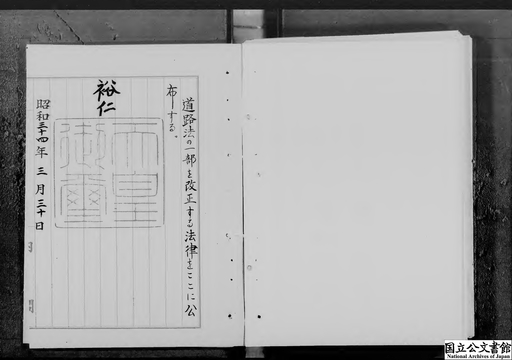 道路法の一部を改正する法律をここに公
布する。
裕仁
天皇
御璽
昭和三十四年三月三十日
国立公文書館
National Archives of Japan